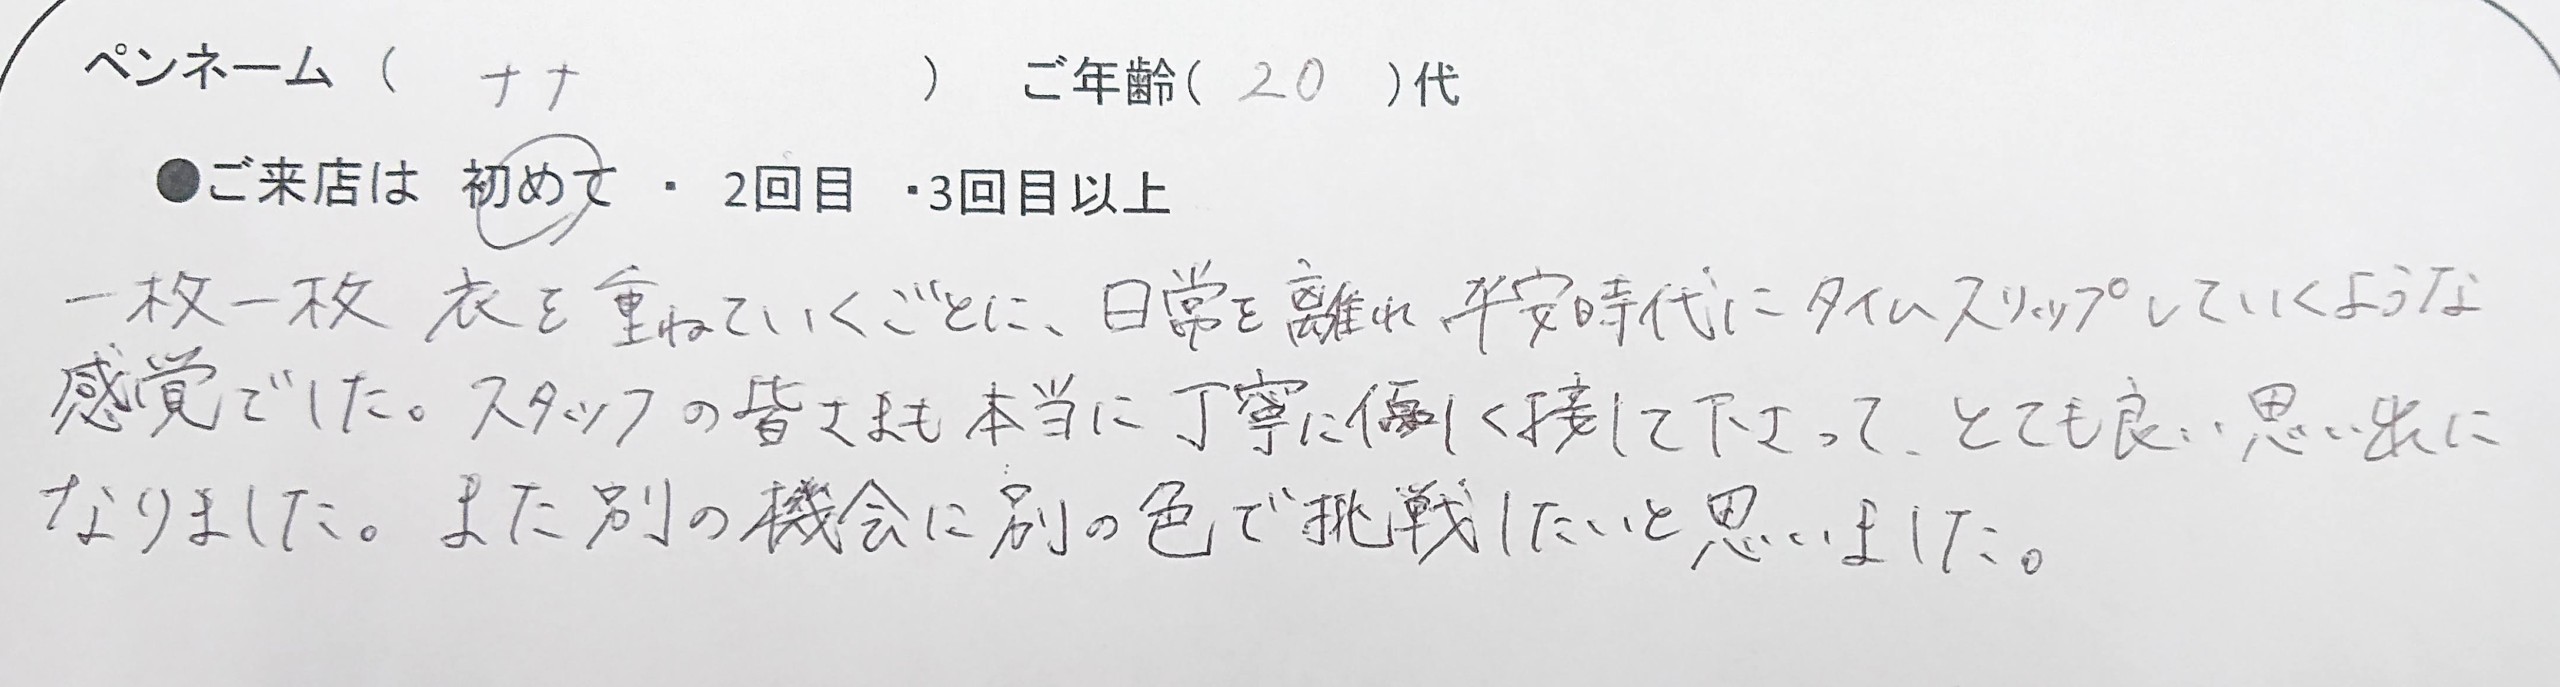 ペンネーム ( ナナ ) ご年齢( 20 )代
●ご来店は 初めて ・ 2回目 ・3回目以上
一枚一枚 衣を重ねていくごとに、日常を離れ平安時代にタイムスリップしていくような
感覚でした。スタッフの皆さまも本当に丁寧に優しく接して下さって、とても良い思い出に
なりました。また別の機会に別の色で挑戦したいと思いました。